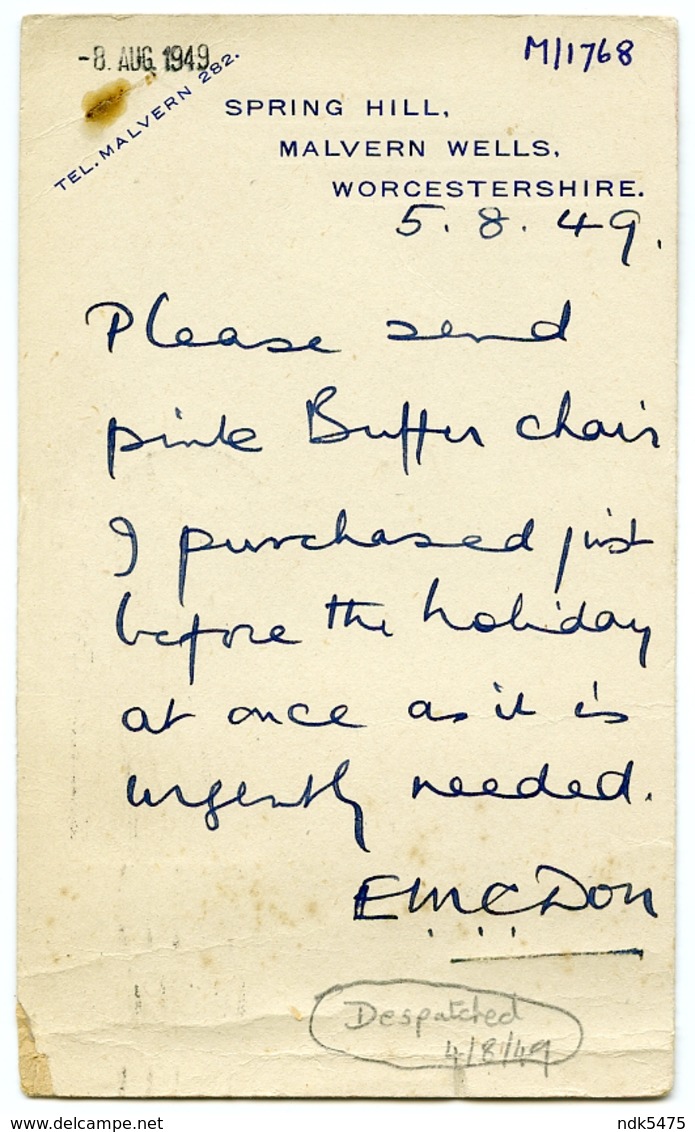 -8. AUG. 1949
M/1768
TEL. MALVERN 282.
SPRING HILL,
MALVERN WELLS,
WORCESTERSHIRE.
5. 8. 49.
Please send
pink Buffer chair
I purchased just
before the holiday
at once as it is
urgently needed.
EMCDon
Despatched
4/8/49
www.delcampe.net
ndk5475